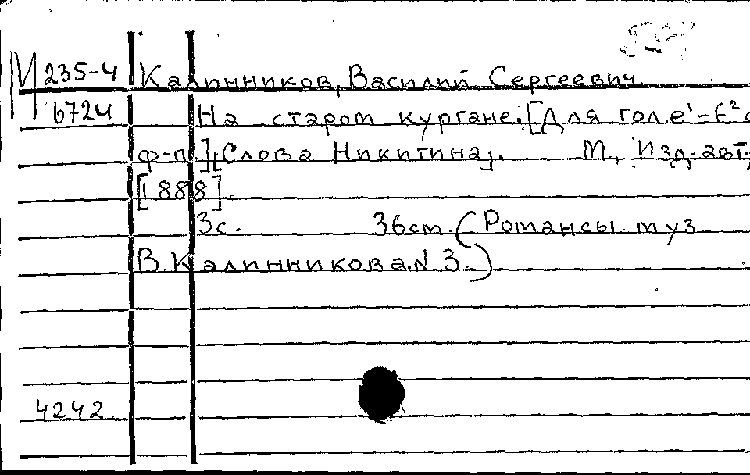 М 235-4 Калинников, Василий Сергеевич
672ч На старом кургане. [Для гол. e'-f² с
ф-п.] [Слова Никитина]. М., Изд. авт.,
[1888].
3с. 36 см. (Романсы муз
В. Калинникова. N 3.)
4242